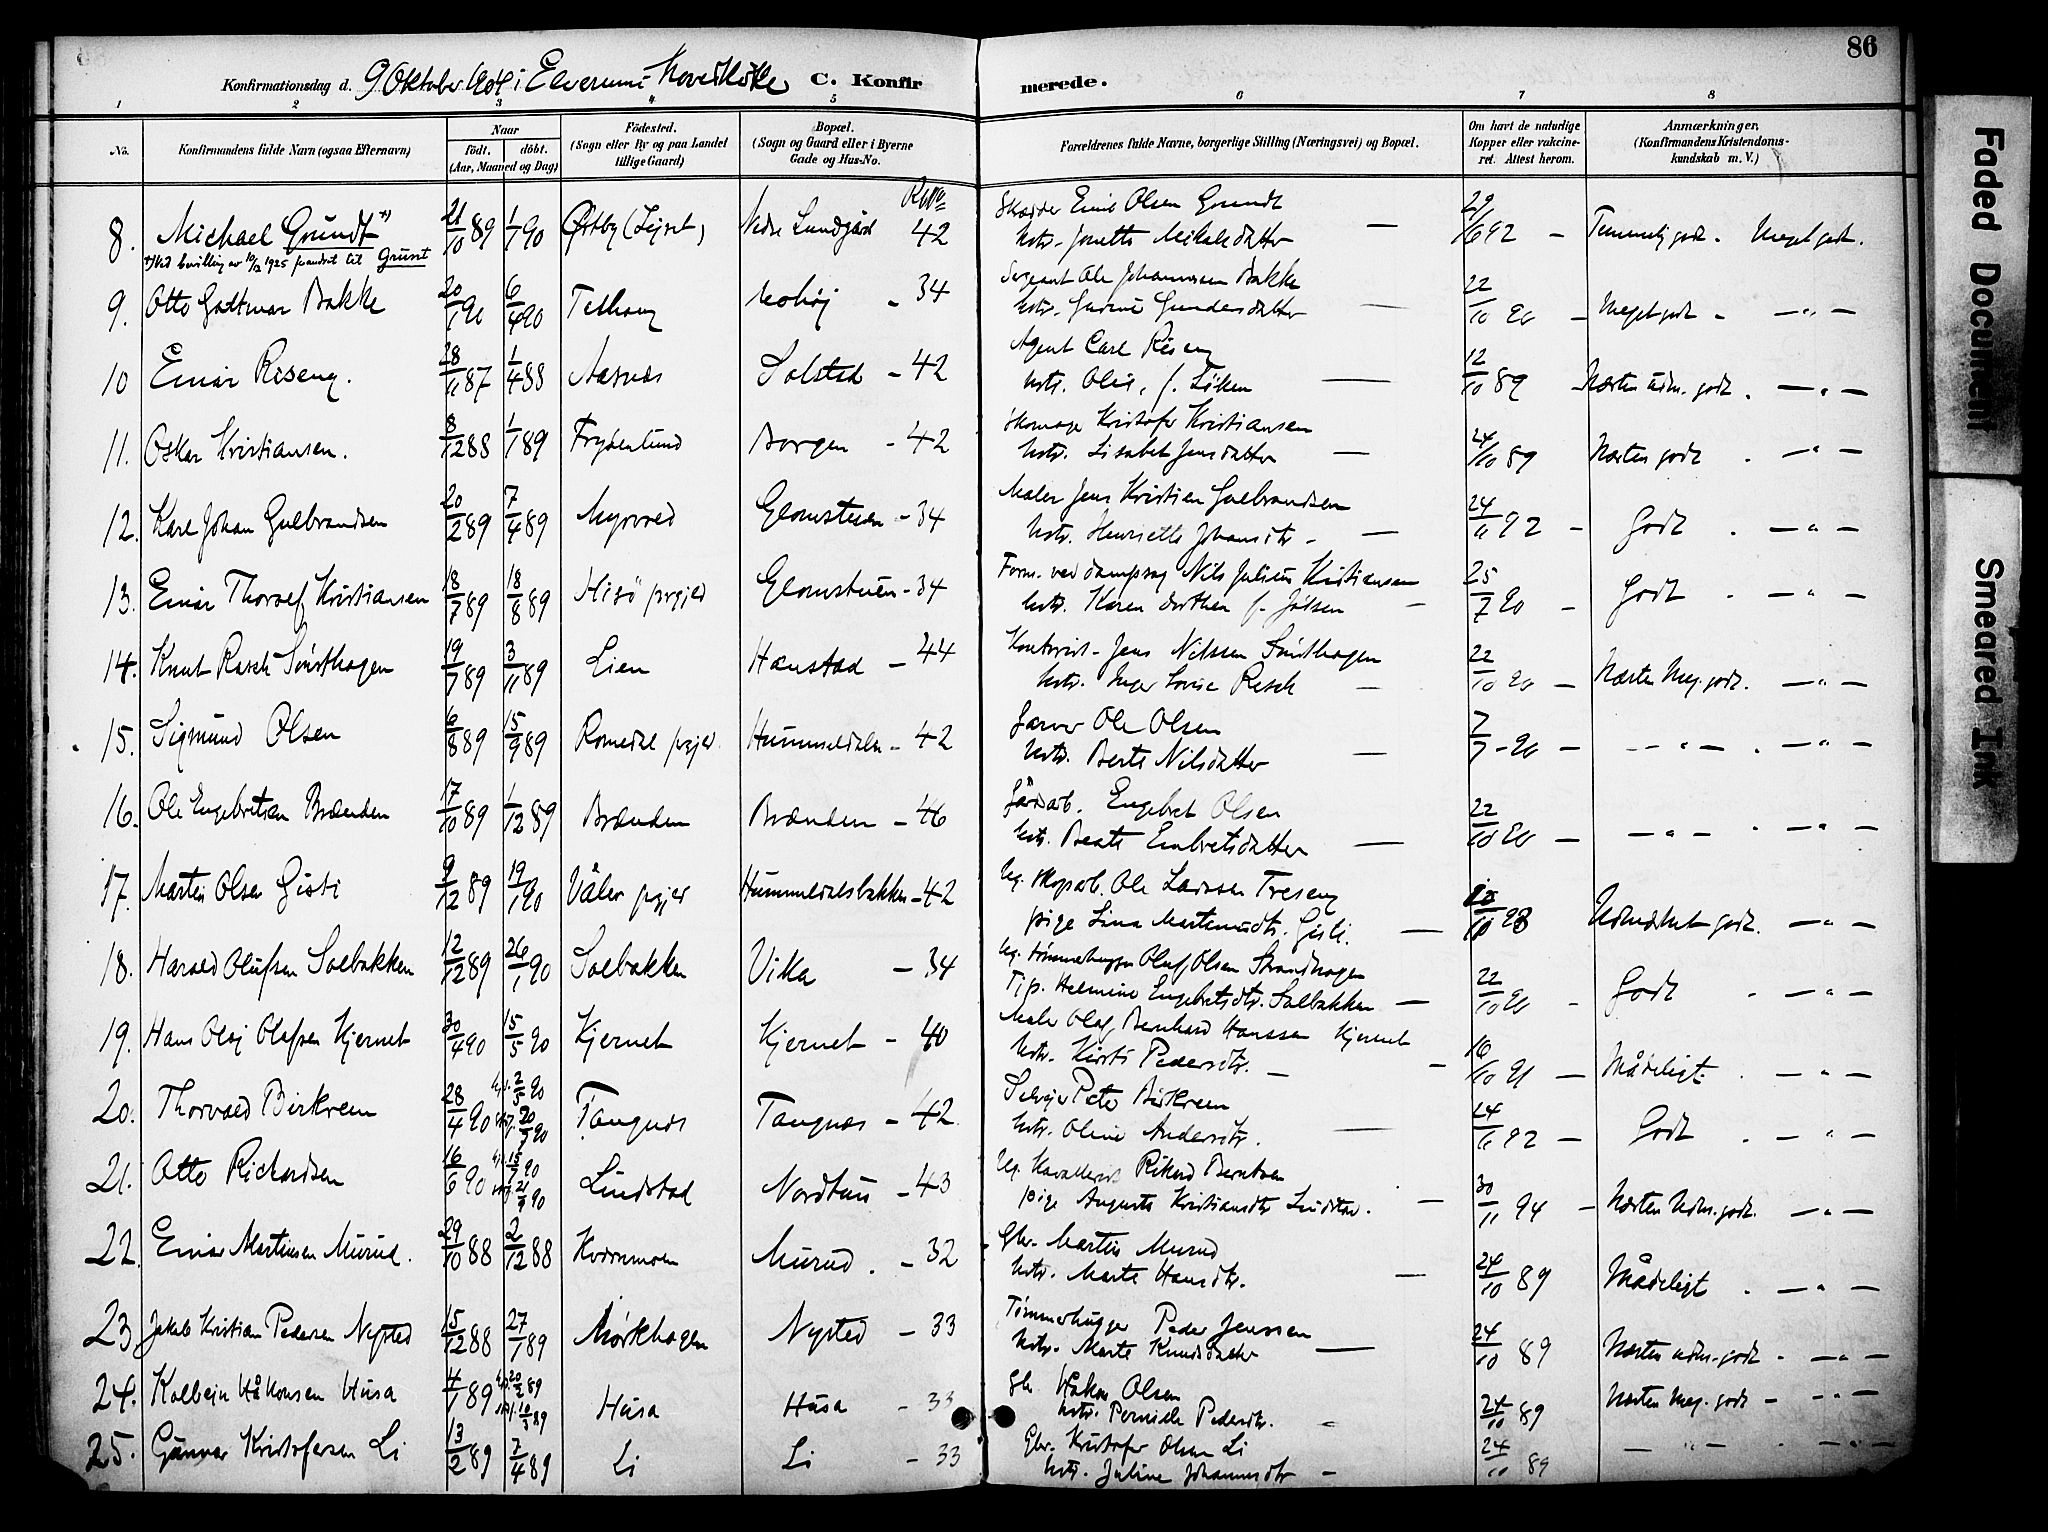 86
Konfirmationsdag d. 9 Oktober 1904 i Elverums Hovedkirke C. Konfirmerede.
1 2 3 4 5 6 7 8
No. Konfirmandens fulde Navn (ogsaa Efternavn) Naar födt. döbt. (Aar, Maaned og Dag) Födested. (Sogn eller By og paa Landet tillige Gaard) Bopæl. (Sogn og Gaard eller i Byerne Gade og Hus-No. Forældrenes fulde Navne, borgerlige Stilling (Næringsvei) og Bopæl. Om havt de naturlige Kopper eller vaccineret. Attest herom. Anmærkninger, (Konfirmandens Kristendomskundskab m. V.)
8. Michael Grundt *) 21/10 89 1/1 90 Østby (Lejret) Nedre Lundgård 42 Emil Olsen Grundt
Hstr. Jonette Mikalsdatter 29/6 92 - Temmelig godt. Meget godt.
*) Ved bevilling av 10/12 1925 forandret til Grunt
9. Otto Gottmar Bakke 20/1 90 6/4 90 Telhaug Mohöj - 34 Sergeant Ole Johannesen Bakke
Hstr. Gurine Gundersdatter 22/10 90 - Meget godt - - " -
10 Einar Riseng. 28/11 87 1/4 88 Aasnæs Solstad - 42 Agent Carl Riseng
Hstr. Olise, f. Löken 12/10 89 Næsten udm. godt. - " -
11. Oskar Kristiansen. 8/12 88 1/1 89 Frydenlund Borgen - 42 Skomager Kristofer Kristiansen
Hstr. Lisabet Jensdatter 24/10 89 Næsten godt. - " -
12. Karl Johan Gulbrandsen 20/2 89 7/4 89 Myrvold Glomstuen - 34 Maler Jens Kristian Gulbrandsen
Hstr. Henriette Johansdtr. 24/11 92 - Godt. - " -
13. Einar Thoralf Kristiansen 18/7 89 18/8 89 Hisö prgjld Glomstuen - 34 Form. ved dampsag Nils Julius Kristiansen
Hstr. Karen Dorthea f. Jölsen 25/7 90 - Godt. - " -
14. Knut Rasch Sørsthagen 19/7 89 3/11 89 Lien Hanstad - 44 Kontorist Jens Nilssen
Hstr. Inger Lovise Rasch 22/10 90 - Næsten Meg. godt. - " -
15. Sigmund Olsen 6/8 89 15/9 89 Romedal prgjld. Hummeldalen - 42 Farver Ole Olsen
Hstr. Berte Nilsdatter 7/7 - 90 - - " - . - " -
16. Ole Engebretsen Brænden 17/10 89 1/12 89 Brænden Brænden - 46 Engebret Olsen
Hstr. Beate Embretsdatter 22/10 90 - - " - . - " -
17. Martin Olsen Gisti 9/12 89 19/1 90 Våler prgjld Hummeldalsbakken - 42 Ug. Skogarb. Ole Larssen Treseng
pige Lina Martinusdtr. Gisti. 93 Udmærket godt. - " -
18. Harald Olufsen Solbakken 12/12 89 26/1 90 Solbakken Vika - 34 Ug. Tömmerhugger Oluf Olsen Strandhagen
Pige Helmine Engebretsdtr. Solbakken 22/10 90 - Godt. - " -
19. Hans Olaj Olafsen Kjernet 30/4 90 15/5 90 Kjernet Kjernet - 40 Maler Olaf Bernhard Hanssen Kjernet
Hstr. Kirsti Pedersdtr. 16/10 91 - Mådeligt. - " -
20. Thorvald Birkrem 28/4 90 2/5 90 Tangnæs Tangnæs - 42 Peter Birkrem
Hstr. Oline Andersdtr. 24/11 92 - Godt. - " -
21. Otto Richardsen 16/6 90 15/7 90 Lindstad Nordhus - 43 Ug. Kavallerist Rikard Berntsen
pige Augusta Kristiansdtr Lindstad. 30/11 94 - Næsten Udm. godt. - " -
22. Einar Martinsen Murud. 29/10 88 2/12 88 Kvernmoen Murud. - 32 Gbr. Martin Murud
Hstr. Marte Hansdtr. 24/10 89 Mådeligt. - " -
23. Jakob Kristian Pedersen Nysted 15/12 88 27/1 89 Mörkhagen Nysted - 33 Tömmerhugger Peder Jenssen
Hstr. Marte Knudsdatter 24/10 89 Næsten udm. godt. - " -
24. Kolbein Håkonsen Husa 4/1 89 20/2 89 10/3 89 Husa Husa - 33 Gbr. Håkon Olsen
Hstr. Pernille Pedersdtr. 24/10 89 Næsten Meg. godt - - " -
25. Gunnar Kristofersen Li 13/2 89 7/4 89 Li Li - 33 Gbr. Kristofer Olsen Li
Hstr. Juline Johannesdtr - 24/10 89 - " - . - " -
Faded Document
Smeared Ink